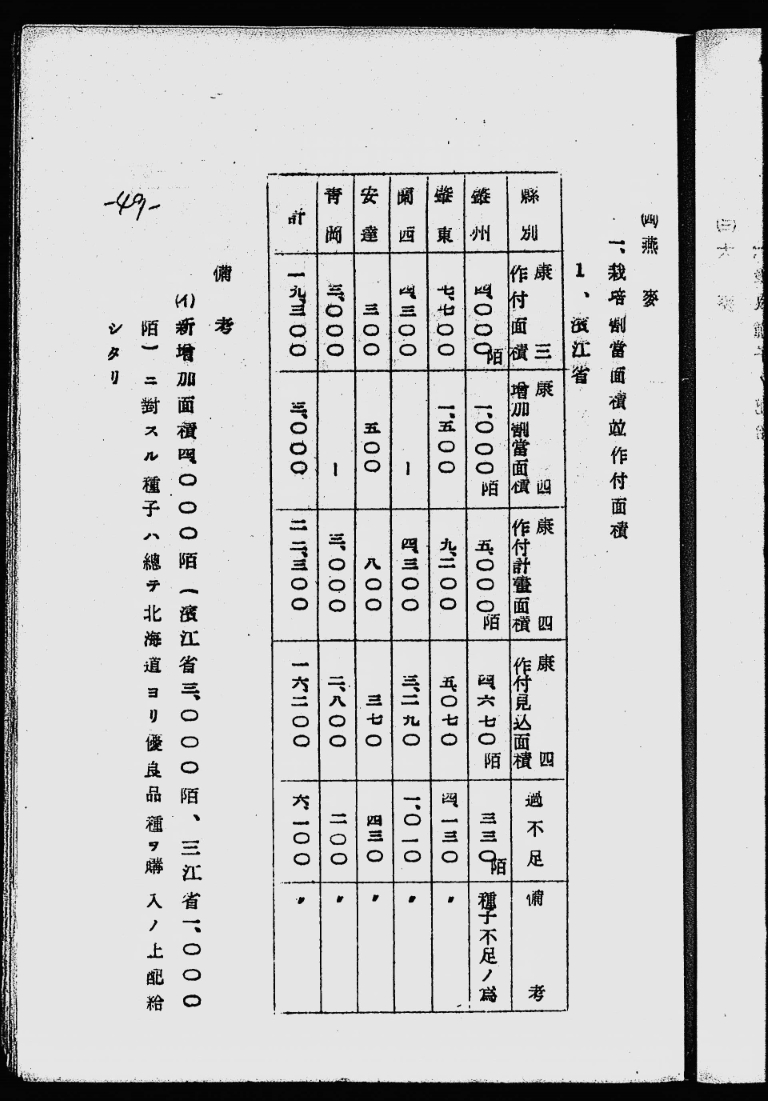 ㈣燕麥
一、栽培割當面積竝作付面積
1、濱江省
縣別 康三作付面積 康四増加割當面積 康四作付計畫面積 康四作付見込面積 過不足 備考
肇州 四、〇〇〇陌 一、〇〇〇陌 五、〇〇〇陌 四、六七〇陌 三三〇陌 種子不足ノ爲
肇東 七、七〇〇 一、五〇〇 九、二〇〇 五、〇七〇 四、一三〇 〃
蘭西 四、三〇〇 ー 四、三〇〇 三、二九〇 一、〇一〇 〃
安達 三〇〇 五〇〇 八〇〇 三七〇 四三〇 〃
青岡 三、〇〇〇 ー 三、〇〇〇 二、八〇〇 二〇〇 〃
計 一九、三〇〇 三、〇〇〇 二二、三〇〇 一六、二〇〇 六、一〇〇 〃
備考
(イ)新増加面積四、〇〇〇陌(濱江省三、〇〇〇陌、三江省一、〇〇〇
陌)ニ對スル種子ハ總テ北海道ヨリ優良品種ヲ購入ノ上配給
シタリ
-49-